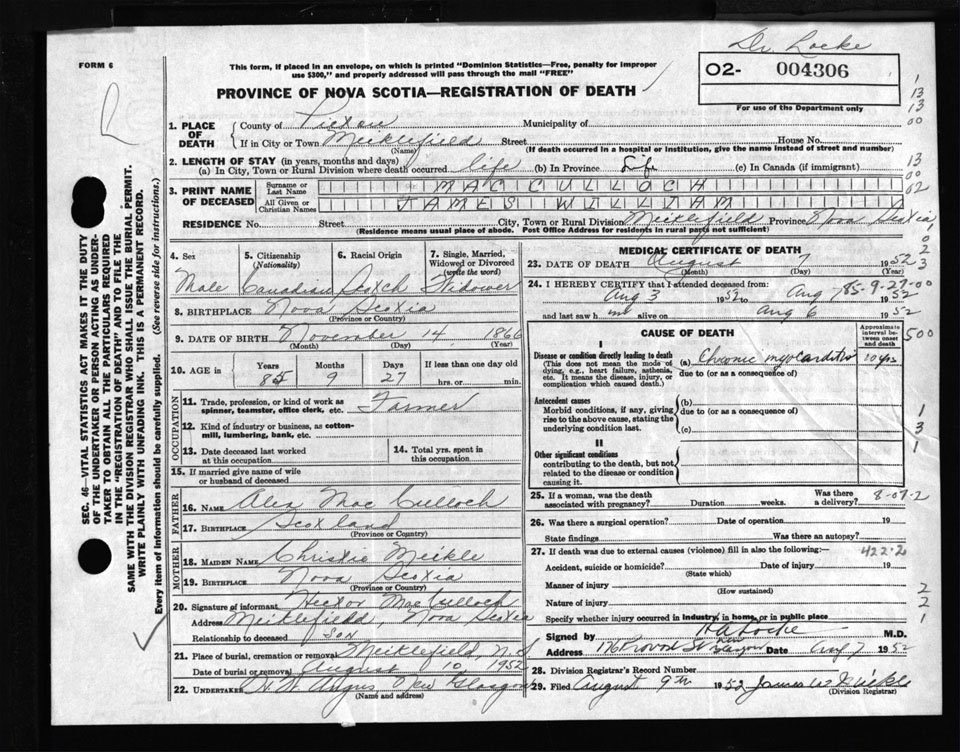 Dr Locke
FORM 6
This form, if placed in an envelope, on which is printed "Dominion Statistics—Free, penalty for improper
use $300," and properly addressed will pass through the mail "FREE"
02- 004306
For use of the Department only
PROVINCE OF NOVA SCOTIA—REGISTRATION OF DEATH
1. PLACE OF DEATH
County of Pictou Municipality of
If in City or Town Meiklefield Street House No.
(Name) (If death occurred in a hospital or institution, give the name instead of street and number)
2. LENGTH OF STAY (in years, months and days)
(a) In City, Town or Rural Division where death occurred life (b) In Province Life (c) In Canada (if immigrant)
3. PRINT NAME OF DECEASED
Surname or Last Name MACCULLOCH
All Given or Christian Names JAMES WILLIAM
RESIDENCE No. Street City, Town or Rural Division Meiklefield Province Nova Scotia
(Residence means usual place of abode. Post Office Address for residents in rural parts not sufficient)
4. Sex 5. Citizenship (Nationality) 6. Racial Origin 7. Single, Married, Widowed or Divorced (write the word)
Male Canadian Scotch Widower
8. BIRTHPLACE Nova Scotia
(Province or Country)
9. DATE OF BIRTH November 14 1866
(Month) (Day) (Year)
10. AGE in Years Months Days If less than one day
85 9 27 hrs. or min.
OCCUPATION
11. Trade, profession, or kind of work as spinner, teamster, office clerk, etc. Farmer
12. Kind of industry or business, as cotton-mill, lumbering, bank, etc.
13. Date deceased last worked at this occupation
14. Total yrs. spent in this occupation
15. If married give name of wife or husband of deceased
FATHER
16. NAME Alex Mac Culloch
17. BIRTHPLACE Scotland
(Province or Country)
MOTHER
18. MAIDEN NAME Christie Meikle
19. BIRTHPLACE Nova Scotia
(Province or Country)
20. Signature of informant Hector Mac Culloch
Address Meiklefield, Nova Scotia
Relationship to deceased son
21. Place of burial, cremation or removal Meiklefield, N.S
Date of burial or removal August 10 1952
22. UNDERTAKER H W Angus New Glasgow
(Name and address)
MEDICAL CERTIFICATE OF DEATH
23. DATE OF DEATH August 7 1952
(Month) (Day) (Year)
85-9-27-00
24. I HEREBY CERTIFY that I attended deceased from:
Aug 3 1952 to Aug 7 1952
and last saw him alive on Aug 6 1952
CAUSE OF DEATH
Approximate interval between onset and death
I
Disease or condition directly leading to death
(This does not mean the mode of dying, e.g., heart failure, asthenia, etc. It means the disease, injury, or complication which caused death.)
(a) Chronic myocarditis 10 yrs
due to (or as a consequence of)
Antecedent causes
Morbid conditions, if any, giving rise to the above cause, stating the underlying condition last.
(b)
due to (or as a consequence of)
(c)
II
Other significant conditions
contributing to the death, but not related to the disease or condition causing it.
25. If a woman, was the death associated with pregnancy? Duration weeks. Was there a delivery?
8-07-2
26. Was there a surgical operation? Date of operation 19
State findings Was there an autopsy?
27. If death was due to external causes (violence) fill in also the following:—
422.2
Accident, suicide or homicide? Date of injury 19
(State which)
Manner of injury
(How sustained)
Nature of injury
Specify whether injury occurred in industry, in home, or in public place
Signed by Locke M.D.
Address 176 Provost St New Glasgow Date Aug 7 1952
28. Division Registrar's Record Number
29. Filed August 9th 1952 James W Meikle
(Division Registrar)
SEC. 46—VITAL STATISTICS ACT MAKES IT THE DUTY
OF THE UNDERTAKER OR PERSON ACTING AS UNDER-
TAKER TO OBTAIN ALL THE PARTICULARS REQUIRED
IN THE "REGISTRATION OF DEATH" AND TO FILE THE
SAME WITH THE DIVISION REGISTRAR WHO SHALL ISSUE THE BURIAL PERMIT.
WRITE PLAINLY WITH UNFADING INK. THIS IS A PERMANENT RECORD.
Every item of information should be carefully supplied. (See reverse side for instructions.)
1
13
13
00
13
00
02
1
0
2
3
500
1
3
1
2
2
1